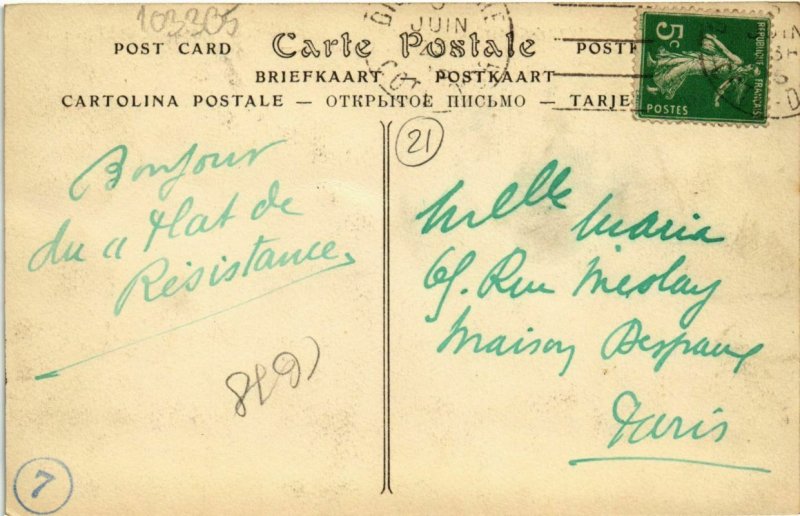 103305
POST CARD Carte Postale POSTK
BRIEFKAART POSTKAART
CARTOLINA POSTALE — ОТКРЫТОЕ ПИСЬМО — TARJE
JUIN
5c
REPUBLIQUE FRANÇAISE
POSTES
21
Bonjour
du "Plat de
Résistance.
Melle Maria
65. Rue Meslay
Maison Despaux
Paris
7